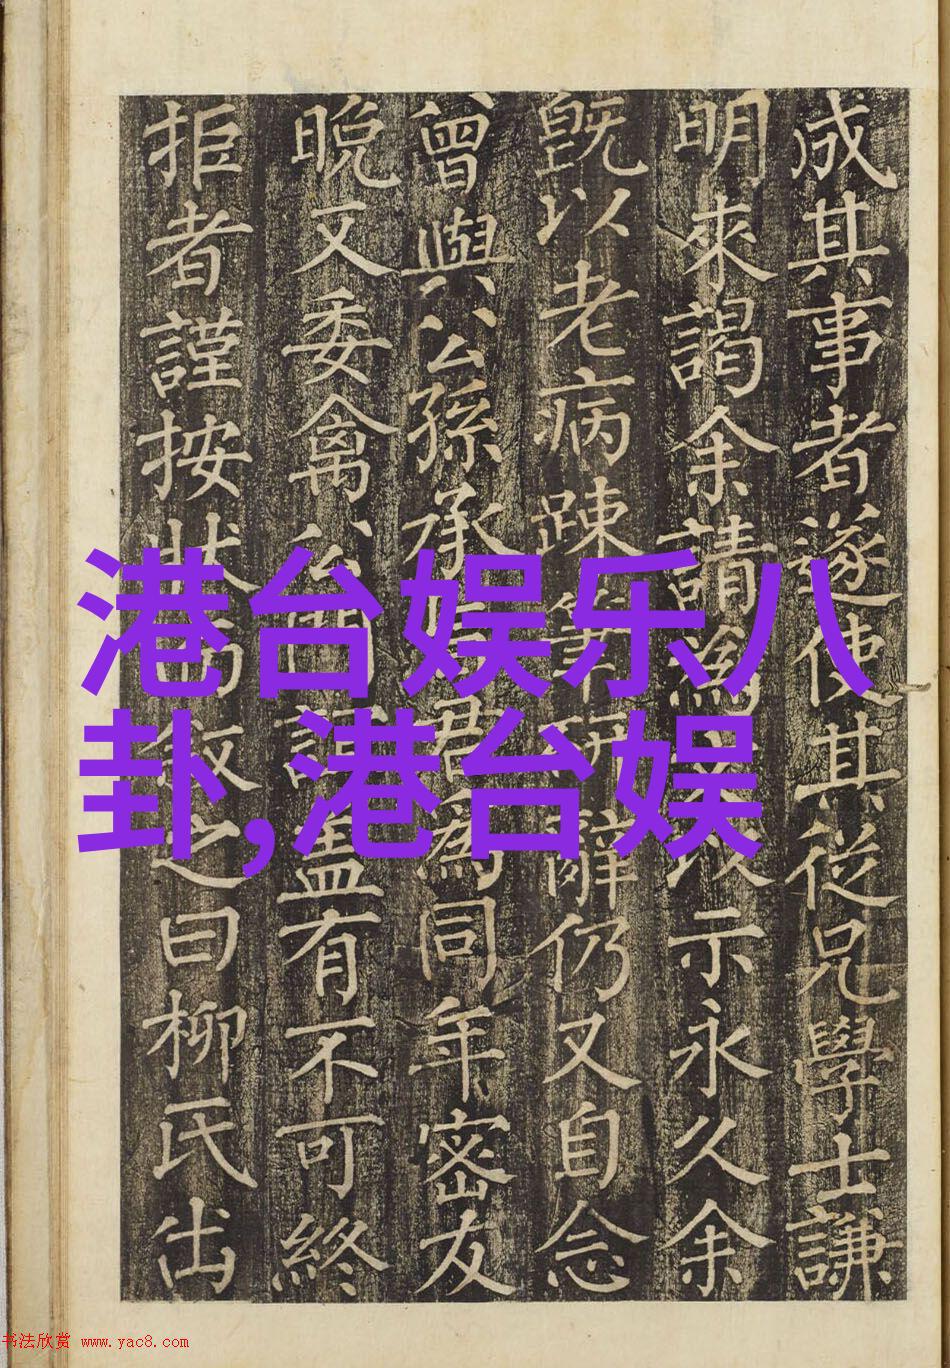 成其事者遂使其從兄學士謙
明來謁余請為以示永久余
既以老病踈筆研辭仍又自念
曾與公孫承旨君為同年密友
晚又委禽公門誼盖有不可終
拒者謹按狀而敘之曰柳氏出
港台娱乐八
卦,港台娱
书法欣赏 www.yac8.com